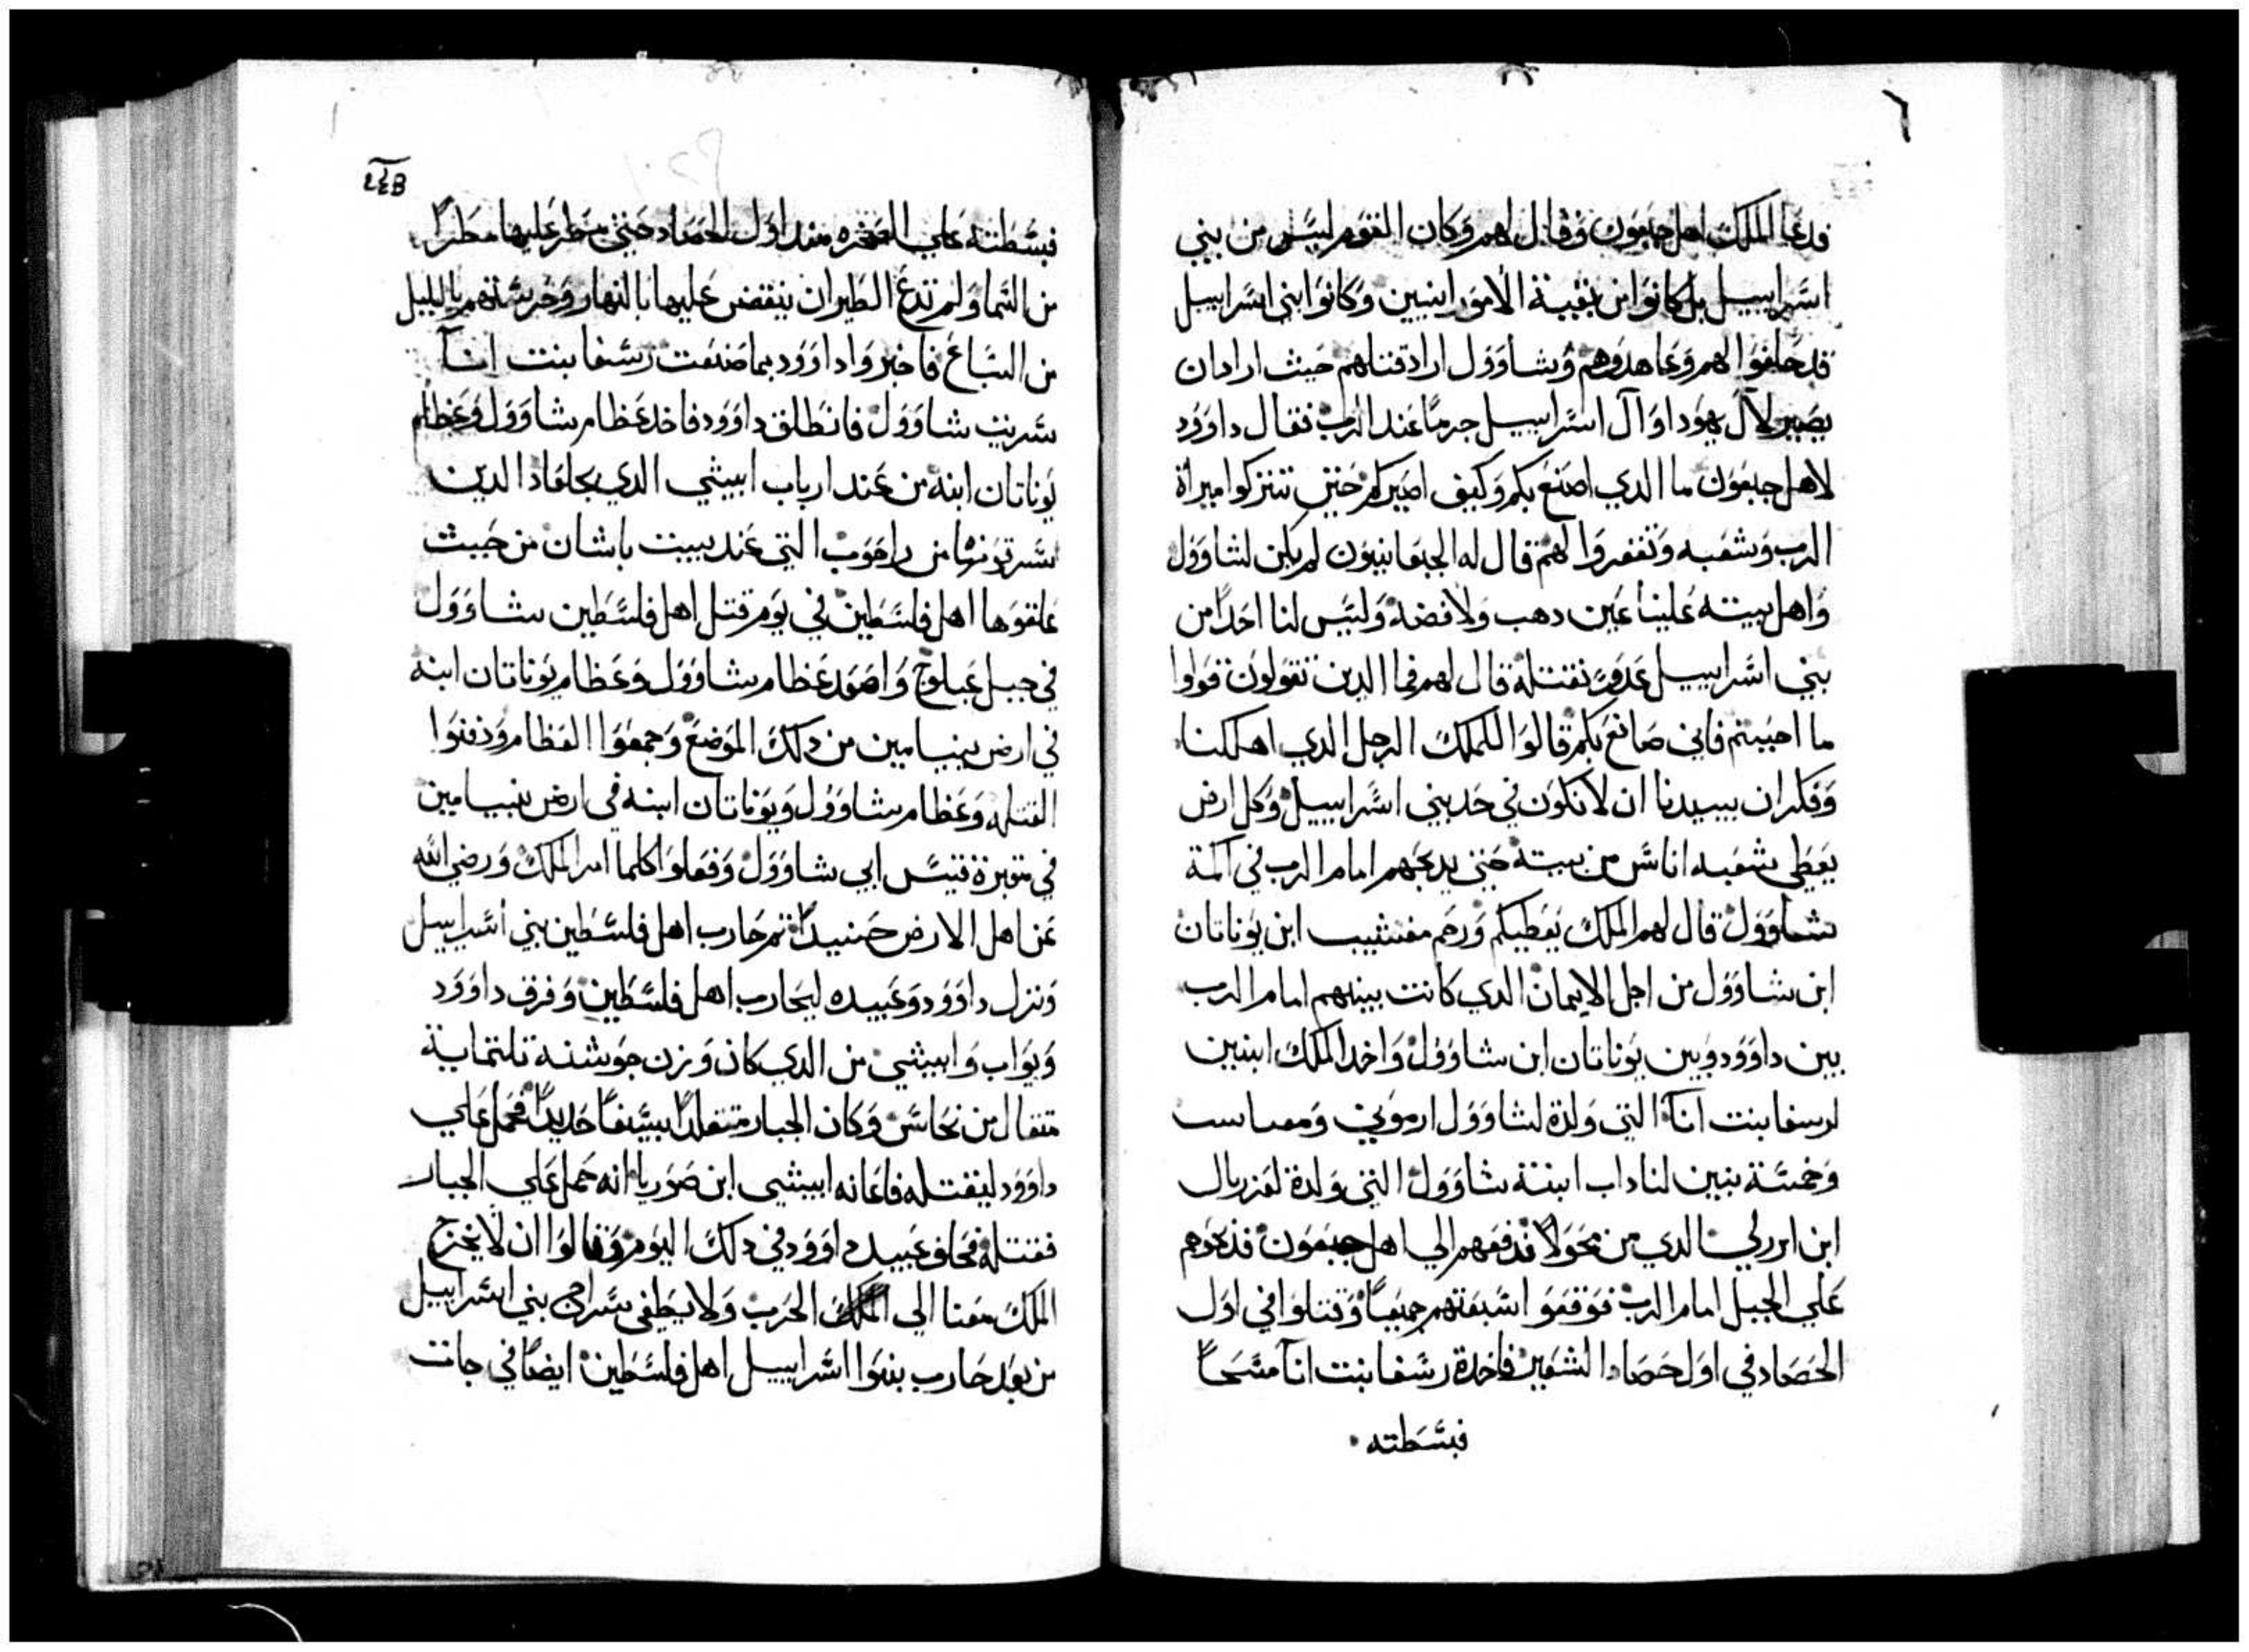 فدعا الملك اهل جبعون وقال لهم وكان القوم ليس من بني
اسراييل بل كانوا من بقية الامورانيين وكانوا بني اسراييل
قد حلفوا لهم وعاهدوهم وشاوول اراد قتلهم حيث اراد ان
يصير لآل يهودا وآل اسراييل جرمًا عند الرب فقال داوود
لاهل جبعون ما الدي اصنع بكم وكيف اصيركم حتي تتبركوا ميراة
الرب وشعبه وتغفروا لهم قال له الجبعانيون لم يكن لشاوول
واهل بيته علينا عين دهب ولا فضة وليس لنا احدًا من
بني اسراييل عدو نقتله قال لهم فما الدين تقولون قولوا
ما احببتم فاني صانع بكم قالوا للملك الرجل الدي اهلكنا
وفكر ان يبيدنا ان لا نكون في حد بني اسراييل وكل ارض
يعطي شعبه اناس من بيته حتي يدبحهم امام الرب في اكمة
شاوول قال لهم الملك يعطيكم ورحم مفتثيب ابن يوناتان
ابن شاوول من اجل الايمان الدي كانت بينهم امام الرب
بين داوود وبين يوناتان ابن شاوول واخد الملك ابنين
لرسفا بنت انآ التي ولدة لشاوول ارموني
وخمسة بنين لناداب ابنتة شاوول التي ولدة لعزريال
ابن الدي من محولا فدفعهم الي اهل جبعون فدبحوهم
علي الجبل امام الرب فوقعوا سبعتهم جميعًا وقتلوا في اول
الحصاد في اول حصاد الشعير فاخدة رسفا بنت انآ مسحًا
فبسطته
٢٤٥
فبسطته علي الصخره مند اول الحصاد حتي مطر عليها مطرًا
من السما ولم تدع الطيران ينقض عليها بالنهار وحرستهم بالليل
من السباع فاخبروا داوود بما صنعت رسفا بنت انآ
سريت شاوول فانطلق داوود فاخد عظام شاوول وعظام
يوناتان ابنه من عند ارباب ابيشي الدي بجلعاد الدين
سرقوها من راحوب التي عند بييت باشان من حيث
علقوها اهل فلسطين في يوم قتل اهل فلسطين شاوول
في جبل عبلوج واصعد عظام شاوول وعظام يوناتان ابنه
في ارض بنيامين من دلك الموضع وجمعوا العظام ودفنوا
القتله وعظام شاوول ويوناتان ابنه في ارض بنيامين
في مقبرة قيس ابي شاوول وفعلوا كلما امر الملك ورضي الله
عن اهل الارض حينيدًا تم حارب اهل فلسطين بني اسراييل
ونزل داوود وعبيده ليحارب اهل فلسطين وفرق داوود
ويواب وابيشي من الدي كان وزن جوشنه تلتماية
متقال من نحاس وكان الجبار متقلدًا بسيفًا حديدًا فحمل علي
داوود ليقتله فاعانه ابيشي ابن صوريا انه حمل علي الجبار
فقتله فحلف عبيد داوود في دلك اليوم وقالوا ان لا يخرج
الملك معنا الي الحرب ولا يطفي سراج بني اسراييل
من بعد حارب بنوا اسراييل اهل فلسطين ايضًا في جات